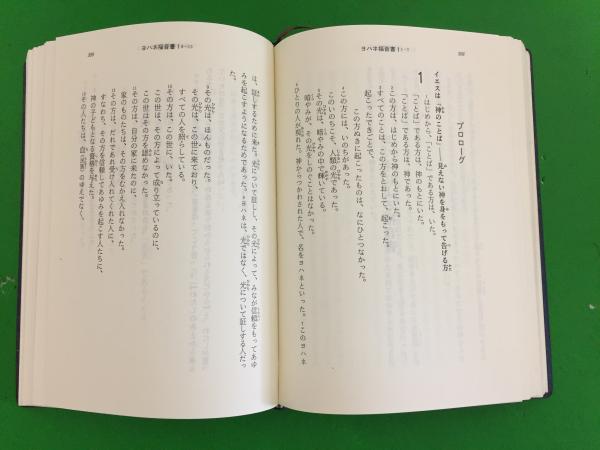 ヨハネ福音書 1
プロローグ
1
イエスは「神のことば」——見えない神を身をもって告げる方
はじめから、「ことば」である方は、いた。
「ことば」である方は、神のもとにいた。
「ことば」である方は、神であった。
2この方は、はじめから神のもとにいた。
3すべてのことは、この方をとおして、起こった。
この方ぬきに起こったものは、なにひとつなかった。
起こったできごとで、
4この方には、いのちがあった。
このいのちこそ、人類の光であった。
5その光は、暗やみの中で輝いている。
暗やみが、その光をしのぐことはなかった。
6ひとりの人が現れた。神からつかわされた人で、名をヨハネといった。7このヨハネ
ヨハネ福音書 1
は、証しするために来た。光について証しし、その光によって、みなが信頼をもってあゆ
みを起こすようになるためであった。8ヨハネは、光ではなく、光について証しする人だっ
た。
9その光は、ほんものだった。
その光は、この世に来ており、
すべての人を照らしている。
10その方は、この世に、いた。
この世は、その方によって成り立っているのに、
この世はその方を認めなかった。
11その方は、自分の家に来たのに、
家のものたちは、その方をむかえ入れなかった。
12その方は、だれであれ受け入れてくれた人に、
すなわち、その方を信頼してあゆみを起こす人たちに、
神の子どもとなる資格を与えた。
13その人たちは、血(血筋)のゆえでなく、